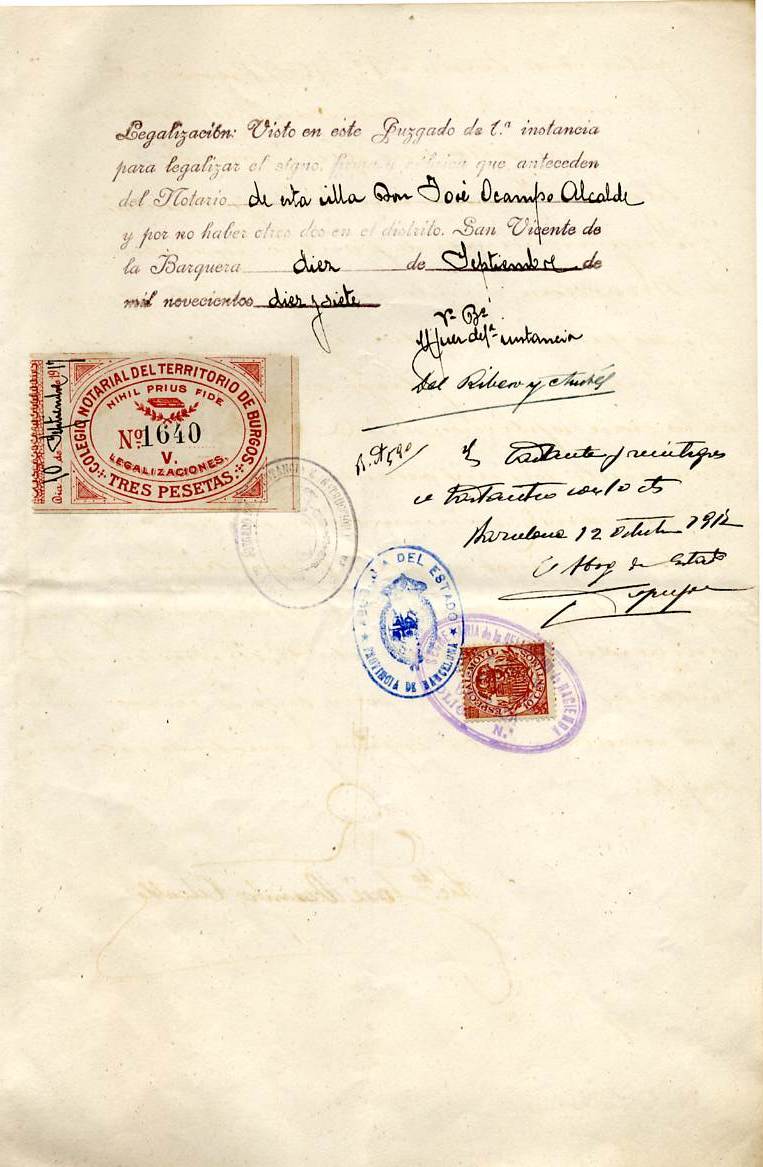 Legalización: Visto en este Juzgado de 1.ª instancia
para legalizar el signo, firma y rúbrica que anteceden
del Notario de esta villa Don José Ocampo Alcalde
y por no haber otros dos en el distrito. San Vicente de
la Barquera diez de Septiembre de
mil novecientos diez y siete
Vº Bº
El Juez de 1ª instancia
Del Ribero y
COLEGIO NOTARIAL DEL TERRITORIO DE BURGOS
NIHIL PRIUS FIDE
Nº 1640
V.
LEGALIZACIONES.
TRES PESETAS.
Día 10 de Septiembre 1917
Barcelona 12 Octubre 191
El Abog del Estado
ABOGACIA DEL ESTADO
PROVINCIA DE BARCELONA
ESPECIAL MOVIL
10 CENTIMOS
HACIENDA
N.º